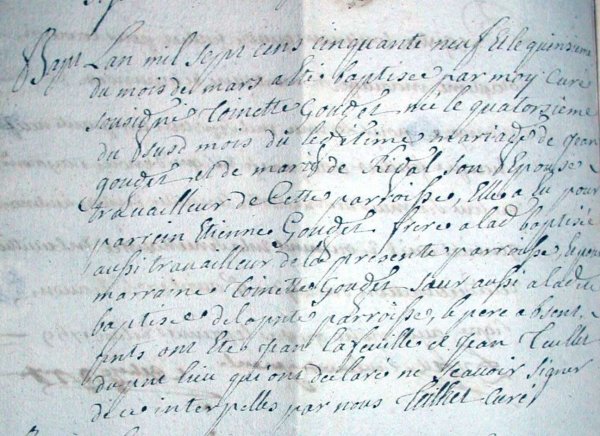 Bapt Lan mil sept cens cinquante neuf et le quinsieme
du mois de mars a été baptisée par moy curé
sousigné Toinette Goudet née le quatorsieme
du susd mois du légitime mariage de Jean
goudet et de marg de Rigal son Epouse
travailleur de Cette parroisse, Elle a eu pour
parrain Etienne Goudet frere a lad baptisée
aussi travailleur de la presente parroisse, et pour
marraine Toinette Goudet sœur aussi a ladite
baptisée de la parroisse, le pere absent.
ont Eté Jean Lafeuille et Jean Teillet
du lieu qui ont declaré ne scavoir signer
de ce interpellés par nous Curé